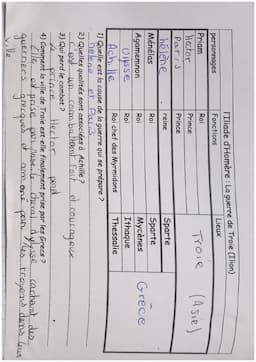 l'Iliade d'Homère : La guerre de Troie (Ilion)
personnages Fonctions Lieux
Priam Roi TROIE (Asie)
Hector Prince
Paris Prince
hélène reine Sparte
Ménélas Roi Sparte
Agamemnon Roi Mycènes Grèce
Ulysse Roi Ithaque
Achille Roi chef des Myrmidons Thessalie
1) Quelle est la cause de la guerre qui se prépare ?
hélène et Paris
2) Quelles qualités sont associées à Achille ?
C'est un combattant fort et courageux
3) Qui perd le combat ?
Le prince Hector perd
4) Comment la ville de Troie est-elle finalement prise par les Grecs ?
Elle est prise par le cheval d'ulysse cachant des
guerriers grecques et amené par les troyens dans leur
ville